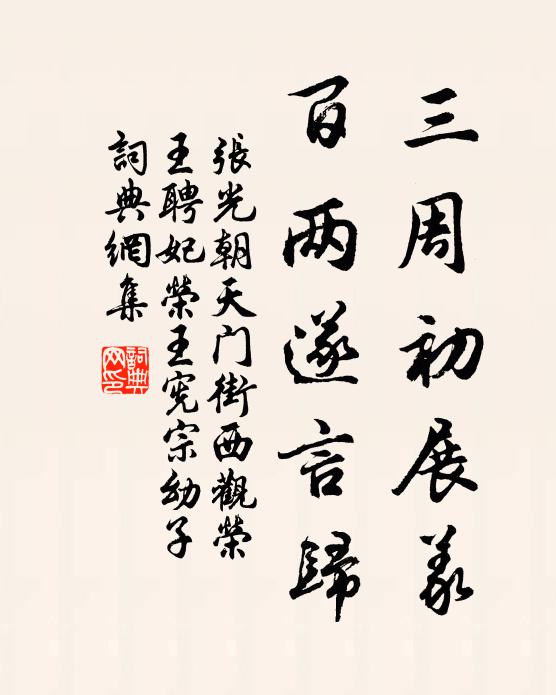 三周初展义
百两遂言歸
張光朝天门街西觀榮
王聘妃榮王宪宗幼子
詞典網集
詞典网印